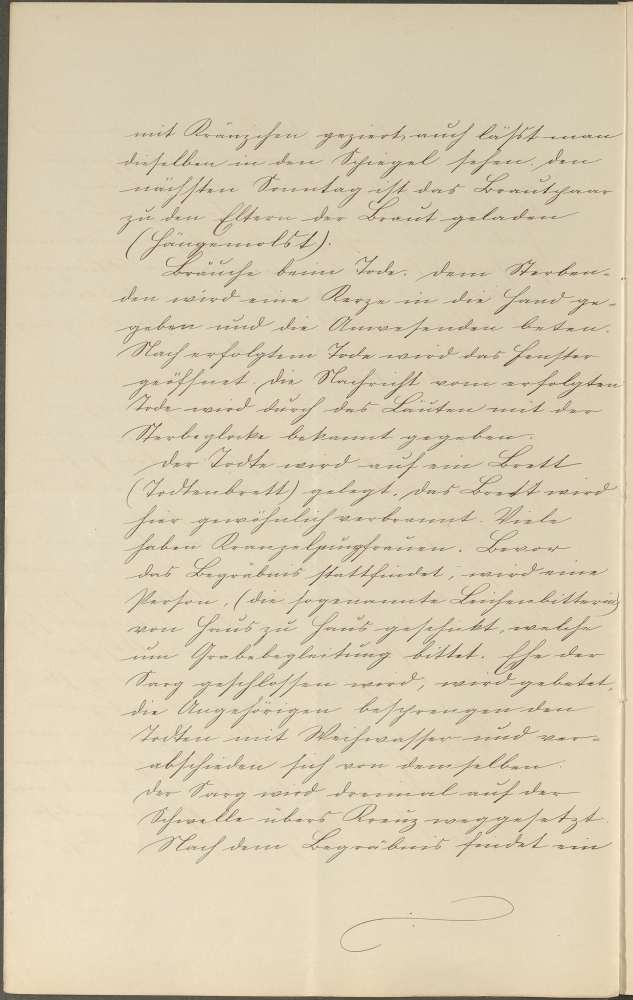 mit Kränzchen geziert, auch läßt man
dieselben in den Spiegel sehen, den
nächsten Sonntag ist das Brautpaar
zu den Eltern der Braut geladen
(Hängemolst).
Bräuche beim Tode. Dem Sterben-
den wird eine Kerze in die Hand ge-
geben und die Anwesenden beten.
Nach erfolgtem Tode wird das Fenster
geöffnet. Die Nachricht vom erfolgten
Tode wird durch das Läuten mit der
Sterbeglocke bekannt gegeben.
Der Todte wird auf ein Brett
(Todtenbrett) gelegt. Das Brett wird
hier gewöhnlich verbrannt. Viele
haben Kranzeljungfrauen. Bevor
das Begräbnis stattfindet, wird eine
Person, (die sogenannte Leichenbitterin)
von Haus zu Haus geschickt, welche
um Grabebegleitung bittet. Ehe der
Sarg geschlossen werd, wird gebetet,
die Angehörigen besprengen den
Todten mit Weihwasser und ver-
abschieden sich von demselben.
Der Sarg wird dreimal auf der
Schwelle übers Kreuz weggesetzt.
Nach dem Begräbnis findet ein